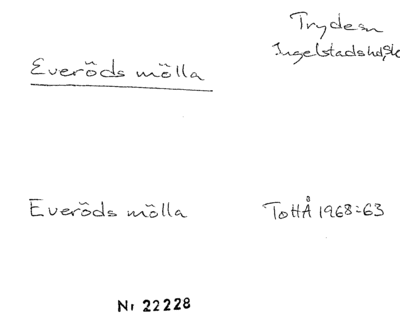 Trydesn
Ingelstadshd, Sk
Everöds mölla
Everöds mölla ToHÅ 1968:63
Nr 22228